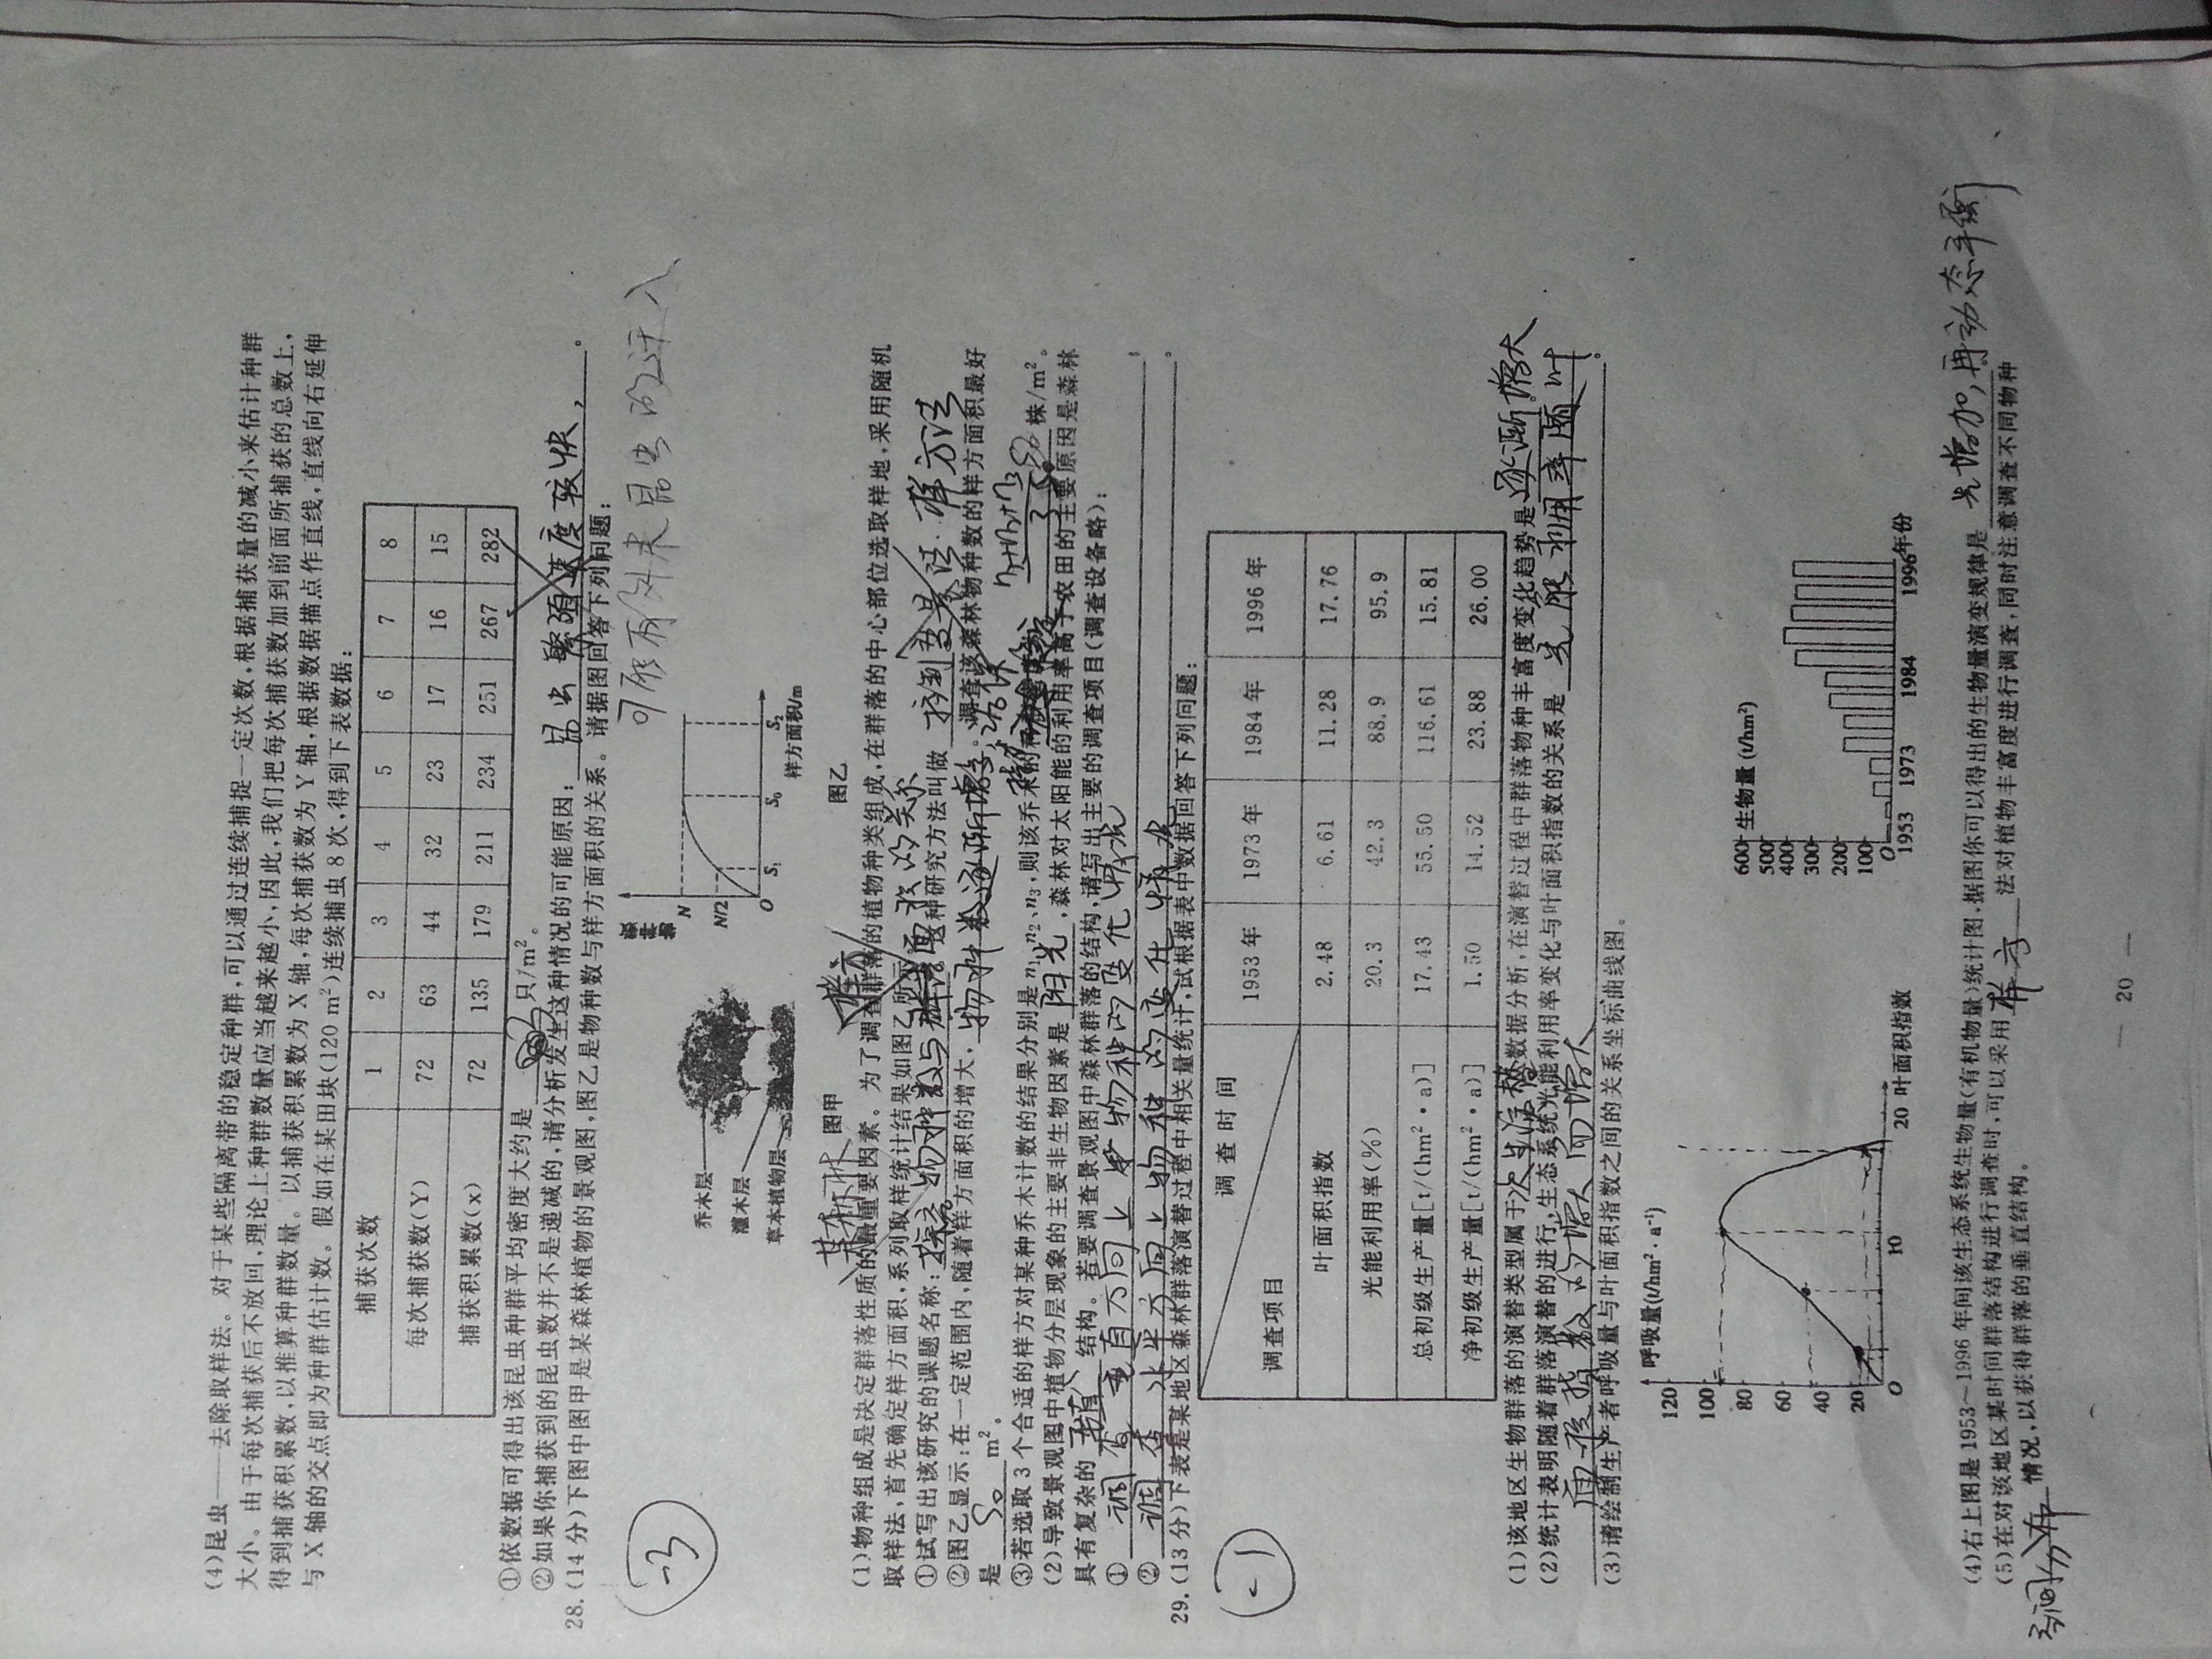 (4)昆虫——去除取样法。对于某些隔离带的稳定种群,可以通过连续捕捉一定次数,根据捕获量的减小来估计种群
大小。由于每次捕获后不放回,理论上种群数量应当越来越小,因此,我们把每次捕获数加到前面所捕获的总数上,
得到捕获积累数,以推算种群数量。以捕获积累数为 X 轴,每次捕获数为 Y 轴,根据数据描点作直线,直线向右延伸
与 X 轴的交点即为种群估计数。假如在某田块(120 m²)连续捕虫 8 次,得到下表数据:
捕获次数 1 2 3 4 5 6 7 8
每次捕获数(Y) 72 63 44 32 23 17 16 15
捕获积累数(x) 72 135 179 211 234 251 267 282
①依数据可得出该昆虫种群平均密度大约是 3 只/m²。
②如果你捕获到的昆虫数并不是递减的,请分析发生这种情况的可能原因: 昆虫繁殖速度较快, 。
28.(14 分)下图中图甲是某森林植物的景观图,图乙是物种数与样方面积的关系。请据图回答下列问题:
可能有外来昆虫的迁入
-3
乔木层
灌木层
草本植物层
图甲
物种数
N
N/2
O S₁ S₀ S₂
样方面积/m
图乙
某森林
样方
(1)物种组成是决定群落性质的最重要因素。为了调查群落的植物种类组成,在群落的中心部位选取样地,采用随机
取样法,首先确定样方面积,系列取样统计结果如图乙所示。
①试写出该研究的课题名称: 探究物种数与 面积的关系 这种研究方法叫做 样方法
②图乙显示:在一定范围内,随着样方面积的增大, 物种数逐渐增多, 。调查该森林物种数的样方面积最好
是 S₀ m²。
③若选取 3 个合适的样方对某种乔木计数的结果分别是 n₁、n₂、n₃,则该乔木的 n₁+n₂+n₃ 3S₀ 株/m²。
(2)导致景观图中植物分层现象的主要非生物因素是 阳光 ,森林对太阳能的利用率高于农田的主要原因是森林
具有复杂的 垂直 结构。若要调查景观图中森林群落的结构,请写出主要的调查项目(调查设备略):
① 调查垂直方向上 物种的变化情况 ;
② 调查水平方向上物种的变化情况 。
29.(13 分)下表是某地区森林群落演替过程中相关量统计,试根据表中数据回答下列问题:
-1
调查时间 调查项目 1953 年 1973 年 1984 年 1996 年
叶面积指数 2.48 6.61 11.28 17.76
光能利用率(%) 20.3 42.3 88.9 95.9
总初级生产量[t/(hm²·a)] 17.43 55.50 116.61 15.81
净初级生产量[t/(hm²·a)] 1.50 14.52 23.88 26.00
(1)该地区生物群落的演替类型属于 次生演替 数据分析,在演替过程中群落物种丰富度变化趋势是 逐渐增大
(2)统计表明随着群落演替的进行,生态系统光能利用率变化与叶面积指数的关系是 光能利用率随叶
面积指数的增大而增大 。
(3)请绘制生产者呼吸量与叶面积指数之间的关系坐标曲线图。
呼吸量(t/hm²·a⁻¹)
120
100
80
60
40
20
O 10 20 叶面积指数
600 生物量 (t/hm²)
500
400
300
200
100
O
1953 1973 1984 1996 年份
(4)右上图是 1953~1996 年间该生态系统生物量(有机物量)统计图,据图你可以得出的生物量演变规律是 先增加,再动态平衡
(5)在对该地区某时间群落结构进行调查时,可以采用 样方 法对植物丰富度进行调查,同时注意调查不同物种
空间分布 情况,以获得群落的垂直结构。
— 20 —